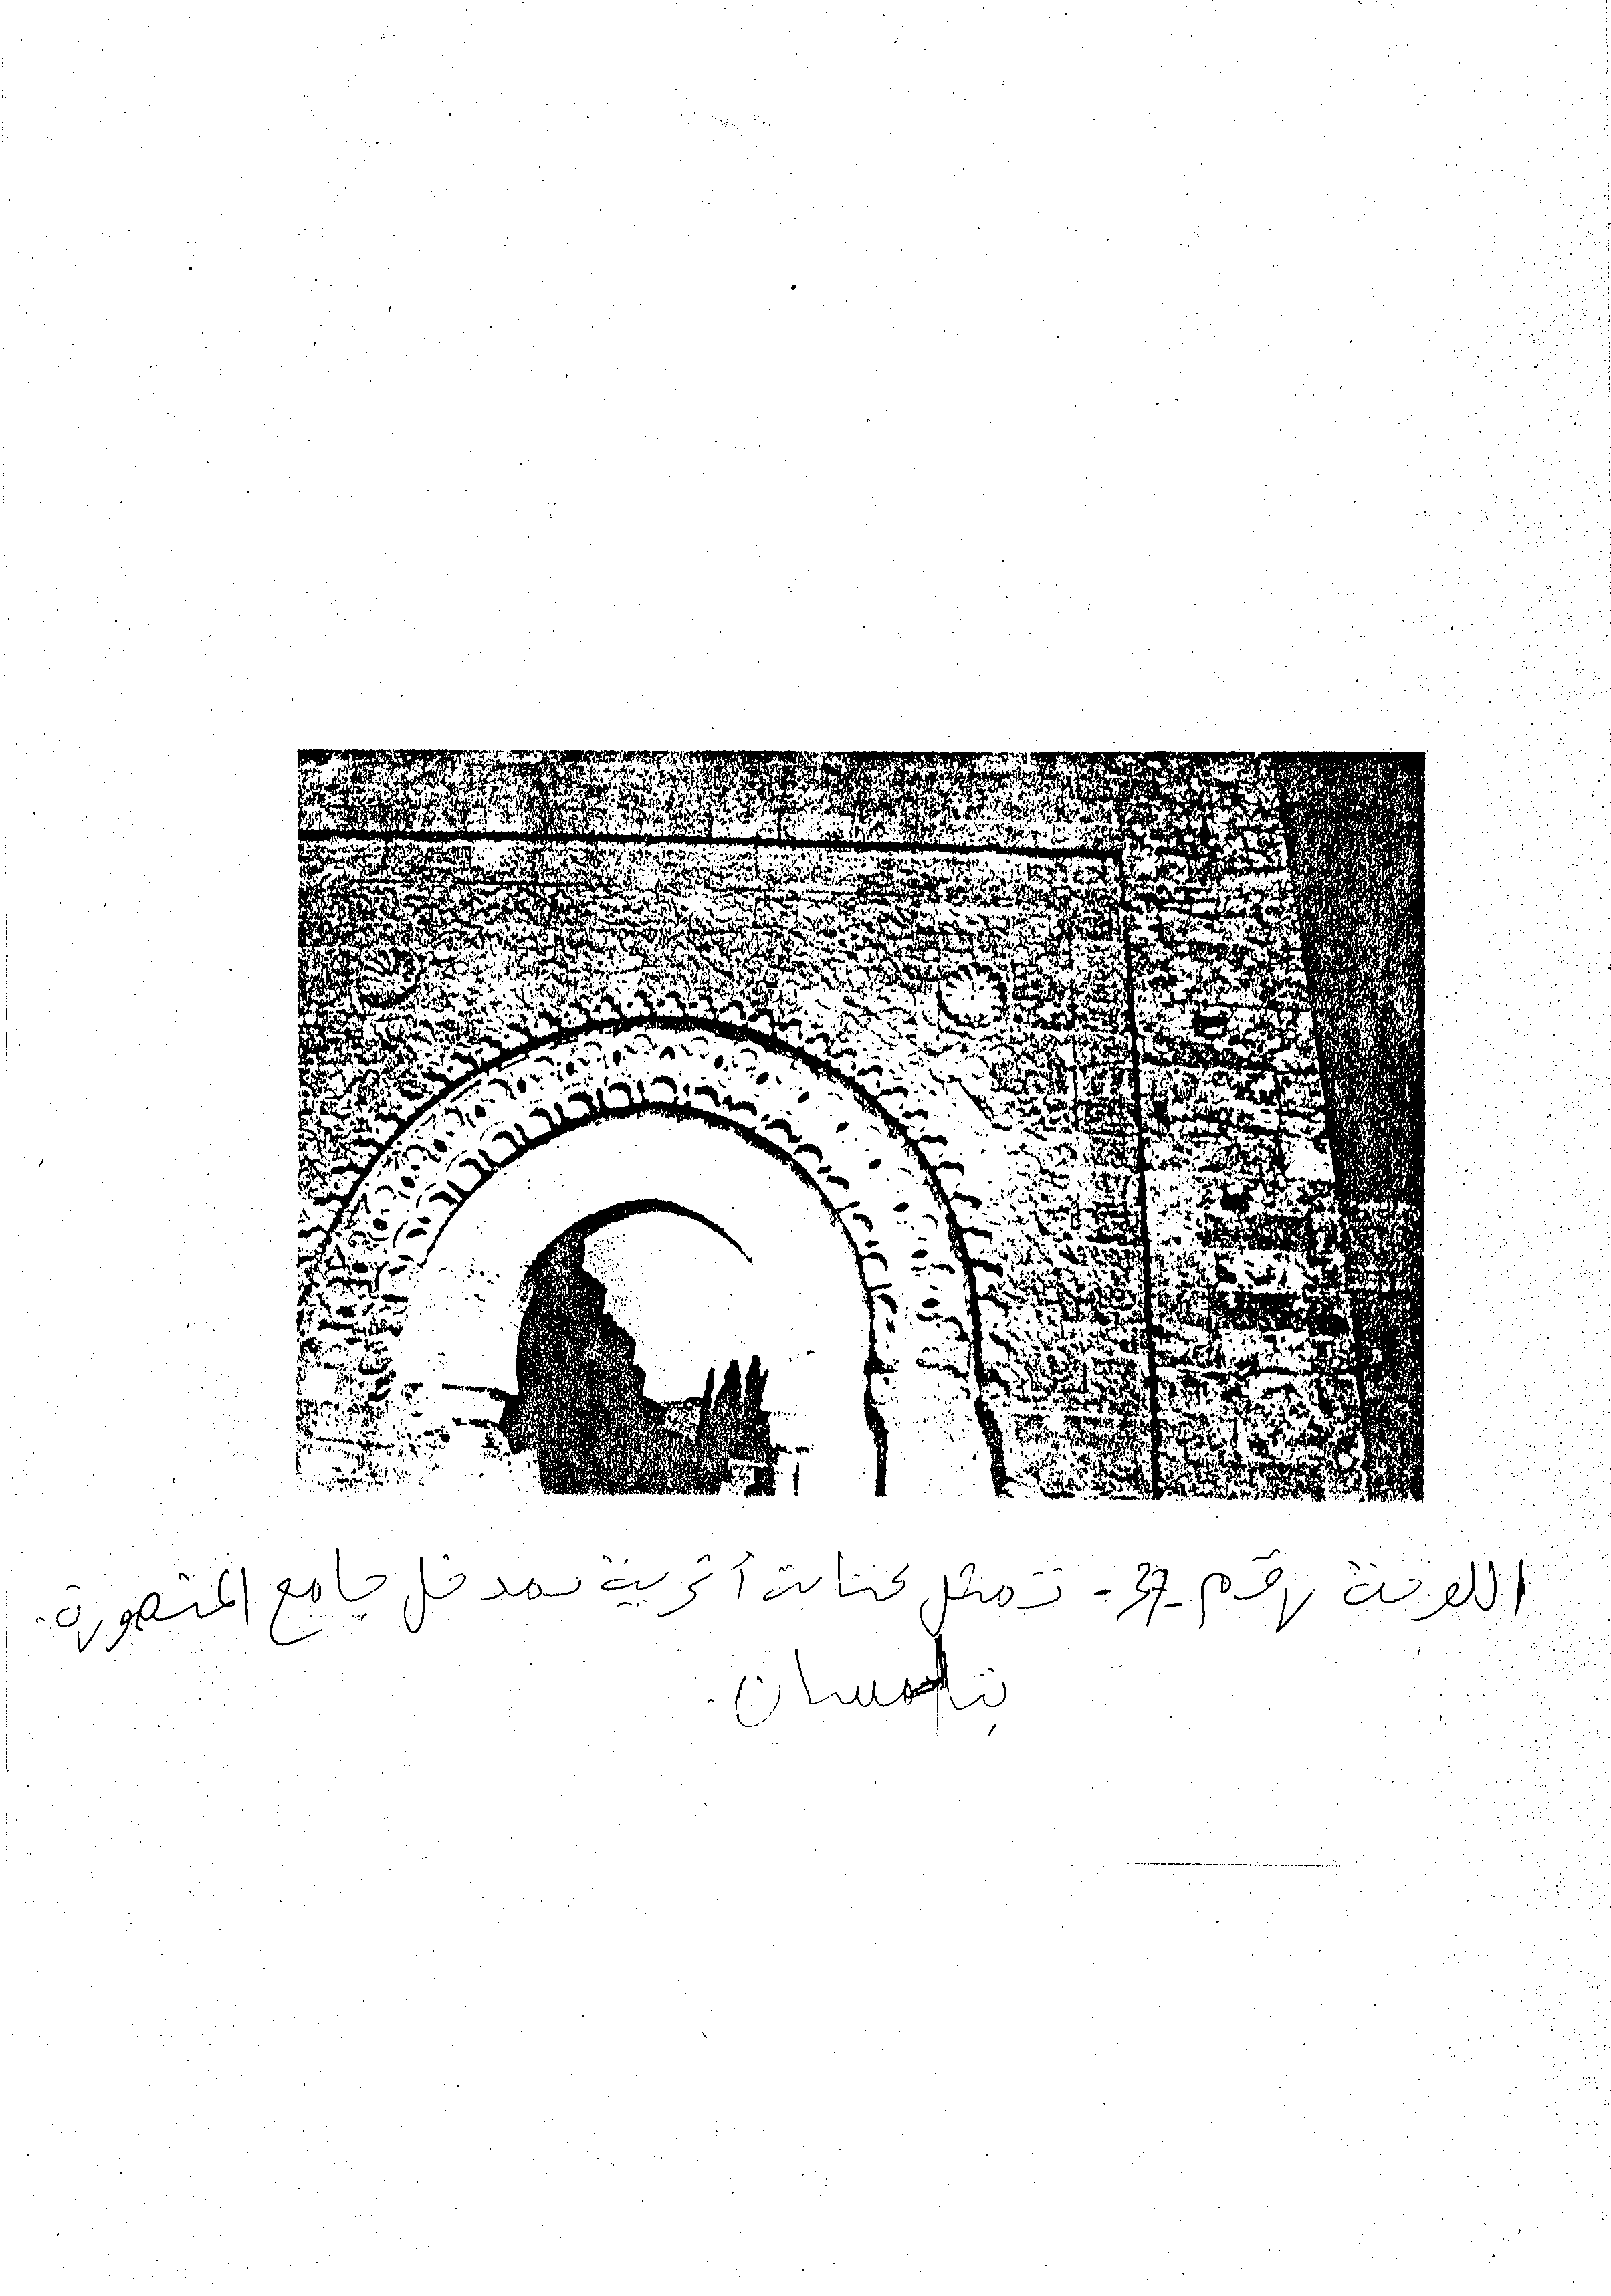 اللوحة رقم -37- تمثل كتابة أثرية بمدخل جامع المنصورة.
بتلمسان.